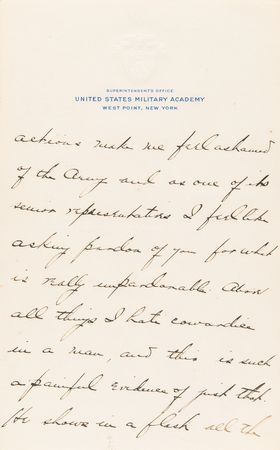 SUPERINTENDENT'S OFFICE
UNITED STATES MILITARY ACADEMY
WEST POINT, NEW YORK
actions make me feel ashamed
of the Army and as one of its
senior representatives I feel like
asking pardon of you for what
is really unpardonable. Above
all things I hate cowardice
in a man, and this is such
a painful evidence of just that.
He shows in a flash all the